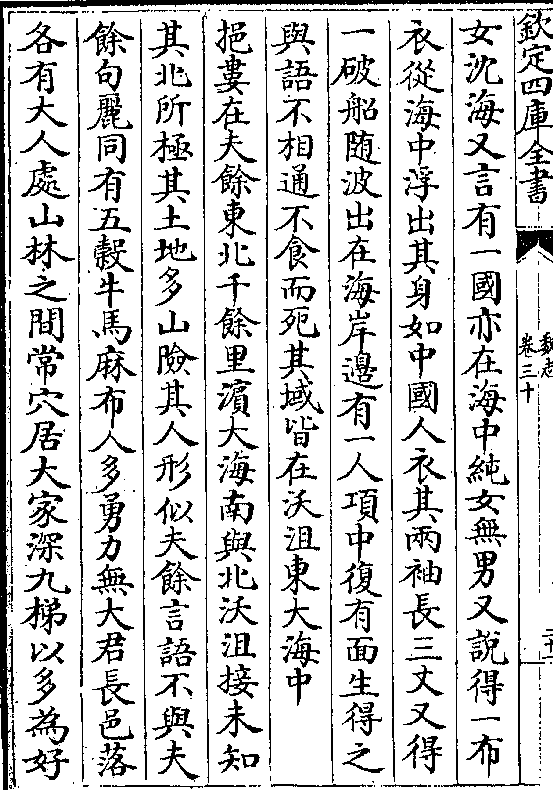 欽定四庫全書
魏志
卷三十
女沈海又言有一國亦在海中純女無男又說得一布
衣從海中浮出其身如中國人衣其兩袖長三丈又得
一破船隨波出在海岸邊有一人項中復有面生得之
與語不相通不食而死其域皆在沃沮東大海中
挹婁在夫餘東北千餘里濵大海南與北沃沮接未知
其北所極其土地多山險其人形似夫餘言語不與夫
餘句麗同有五穀牛馬麻布人多勇力無大君長邑落
各有大人處山林之間常穴居大家深九梯以多為好